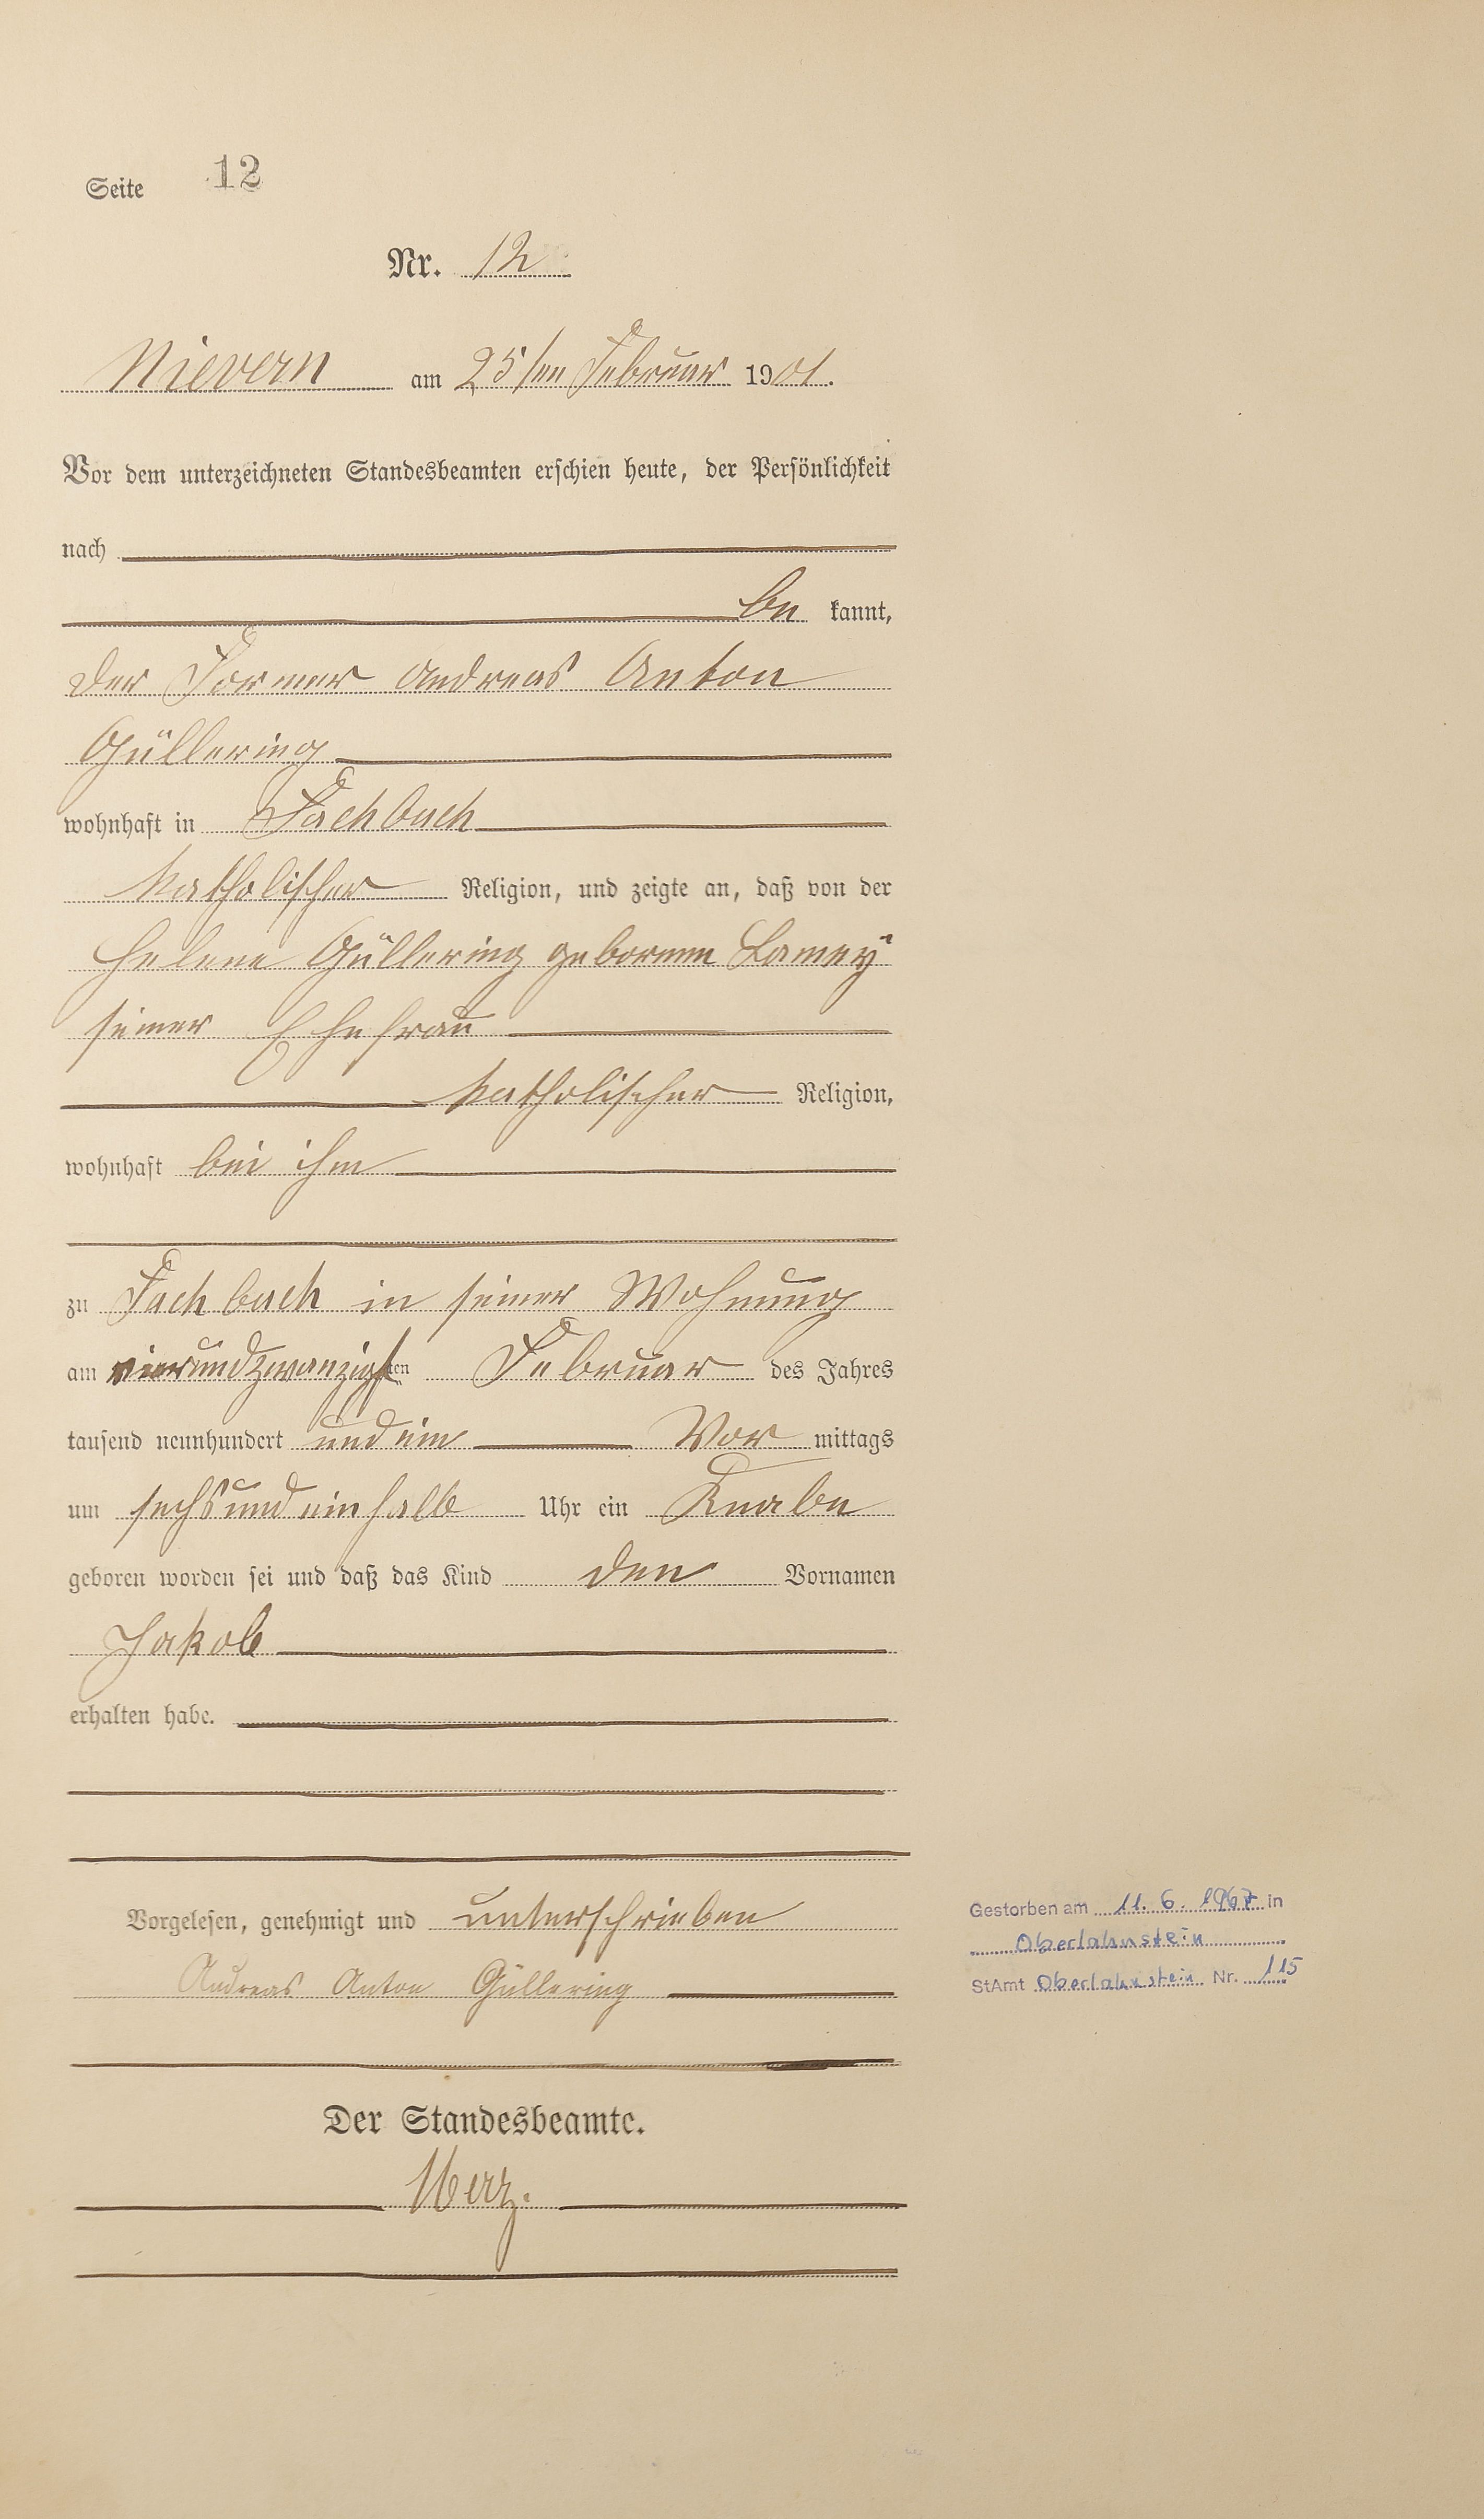 Seite 12
Nr. 12
Nievern am 25ten Februar 1901.
Vor dem unterzeichneten Standesbeamten erschien heute, der Persönlichkeit
nach
be kannt,
der Former Andreas Anton
Güllering
wohnhaft in Fachbach
katholischer Religion, und zeigte an, daß von der
Helene Güllering geborenen Lamey
seiner Ehefrau
katholischer Religion,
wohnhaft bei ihm
zu Fachbach in seiner Wohnung
am vierundzwanzigsten Februar des Jahres
tausend neunhundert und ein Vor mittags
um sechs und ein halb Uhr ein Knabe
geboren worden sei und daß das Kind den Vornamen
Jakob
erhalten habe.
Vorgelesen, genehmigt und unterschrieben
Andreas Anton Güllering
Der Standesbeamte.
Merz.
Gestorben am 11. 6. 1967 in
Oberlahnstein
StAmt Oberlahnstein Nr. 115